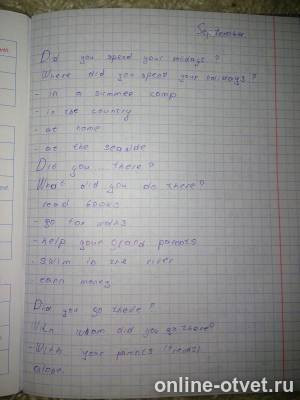 September
Did you spend your holidays?
Where did you spend your holidays?
- in a summer camp
- in the country
- at home
- at the seaside
Did you ... there?
What did you do there?
read books
- go for walks
- help your grand parents
- swim in the river
- earn money
Did you go there?
With whom did you go there?
- With your parents (friends)
alone.
online-otvet.ru